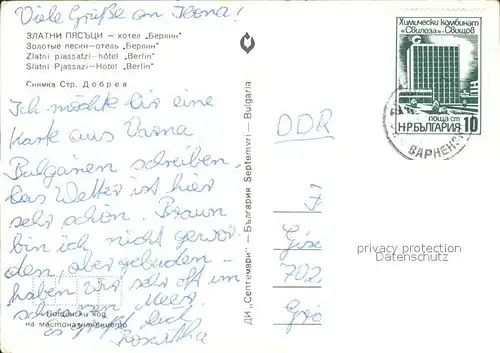 Viele Grüße an Ilona!
ЗЛАТНИ ПЯСЪЦИ – хотел „Берлин"
Золотые пески–отель „Берлин"
Zlatni piassatzi–hôtel „Berlin"
Slatni Pjassazi–Hotel „Berlin"
Снимка Стр. Добрев
Ich möchte Dir eine
Karte aus Varna
Bulgarien schreiben.
Das Wetter ist hier
sehr schön. Braun
bin ich nicht gewor
den, aber gebaden
haben wir sehr oft im
schwarzen Meer.
Es grüßt Dich
Пощенски код
на местоназначението
ДИ „Септември" – България Septemvri – Bulgaria
Химически комбинат
„Свилоза" – Свищов
поща ст
НР БЪЛГАРИЯ 10
ВАРНЕНС
DDR
F
Gis
702
privacy protection
Datenschutz